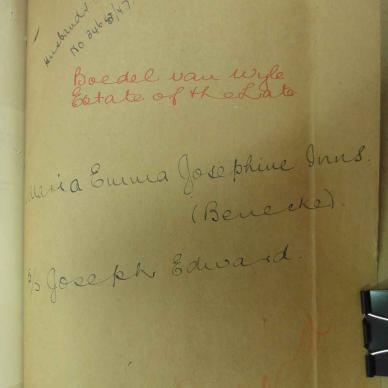 Husbands
No 3468/47
Boedel van Wyle
Estate of the Late
Maria Emma Josephine Inns.
(Benecke).
s/s Joseph Edward.